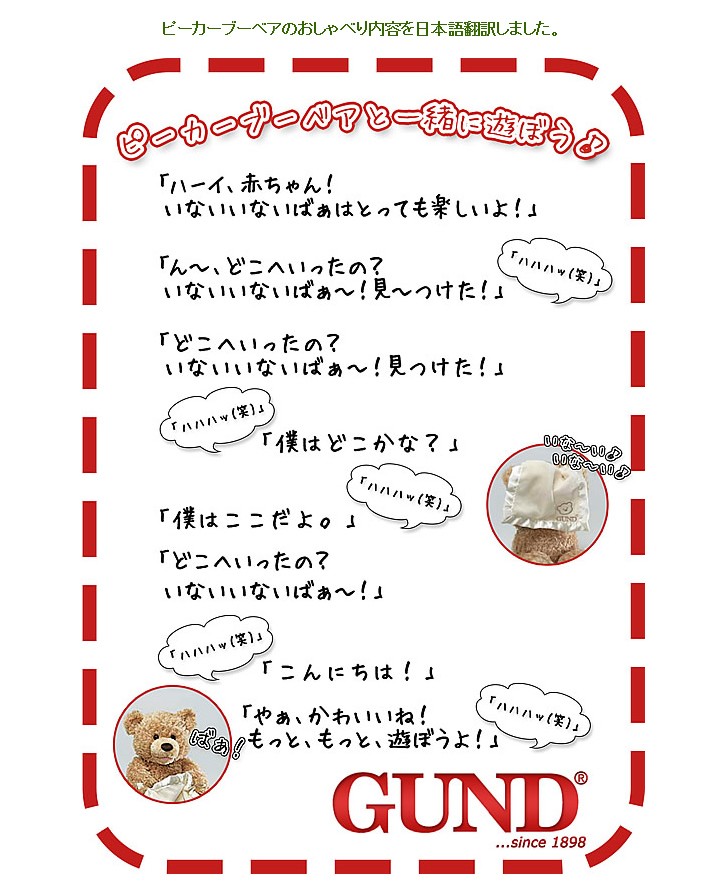 ピーカーブーベアのおしゃべり内容を日本語翻訳しました。
ピーカーブーベアと一緒に遊ぼう♪
「ハーイ、赤ちゃん！
いないいないばぁはとっても楽しいよ！」
「ハハハッ(笑)」
「ん〜、どこへいったの？
いないいないばぁ〜！見〜つけた！」
「どこへいったの？
いないいないばぁ〜！見つけた！」
「ハハハッ(笑)」
「僕はどこかな？」
いな〜い♪
いな〜い♪
GUND
「ハハハッ(笑)」
「僕はここだよ。」
「どこへいったの？
いないいないばぁ〜！」
「ハハハッ(笑)」
「こんにちは！」
「ハハハッ(笑)」
「やぁ、かわいいね！
もっと、もっと、遊ぼうよ！」
ばぁ！
GUND®
...since 1898